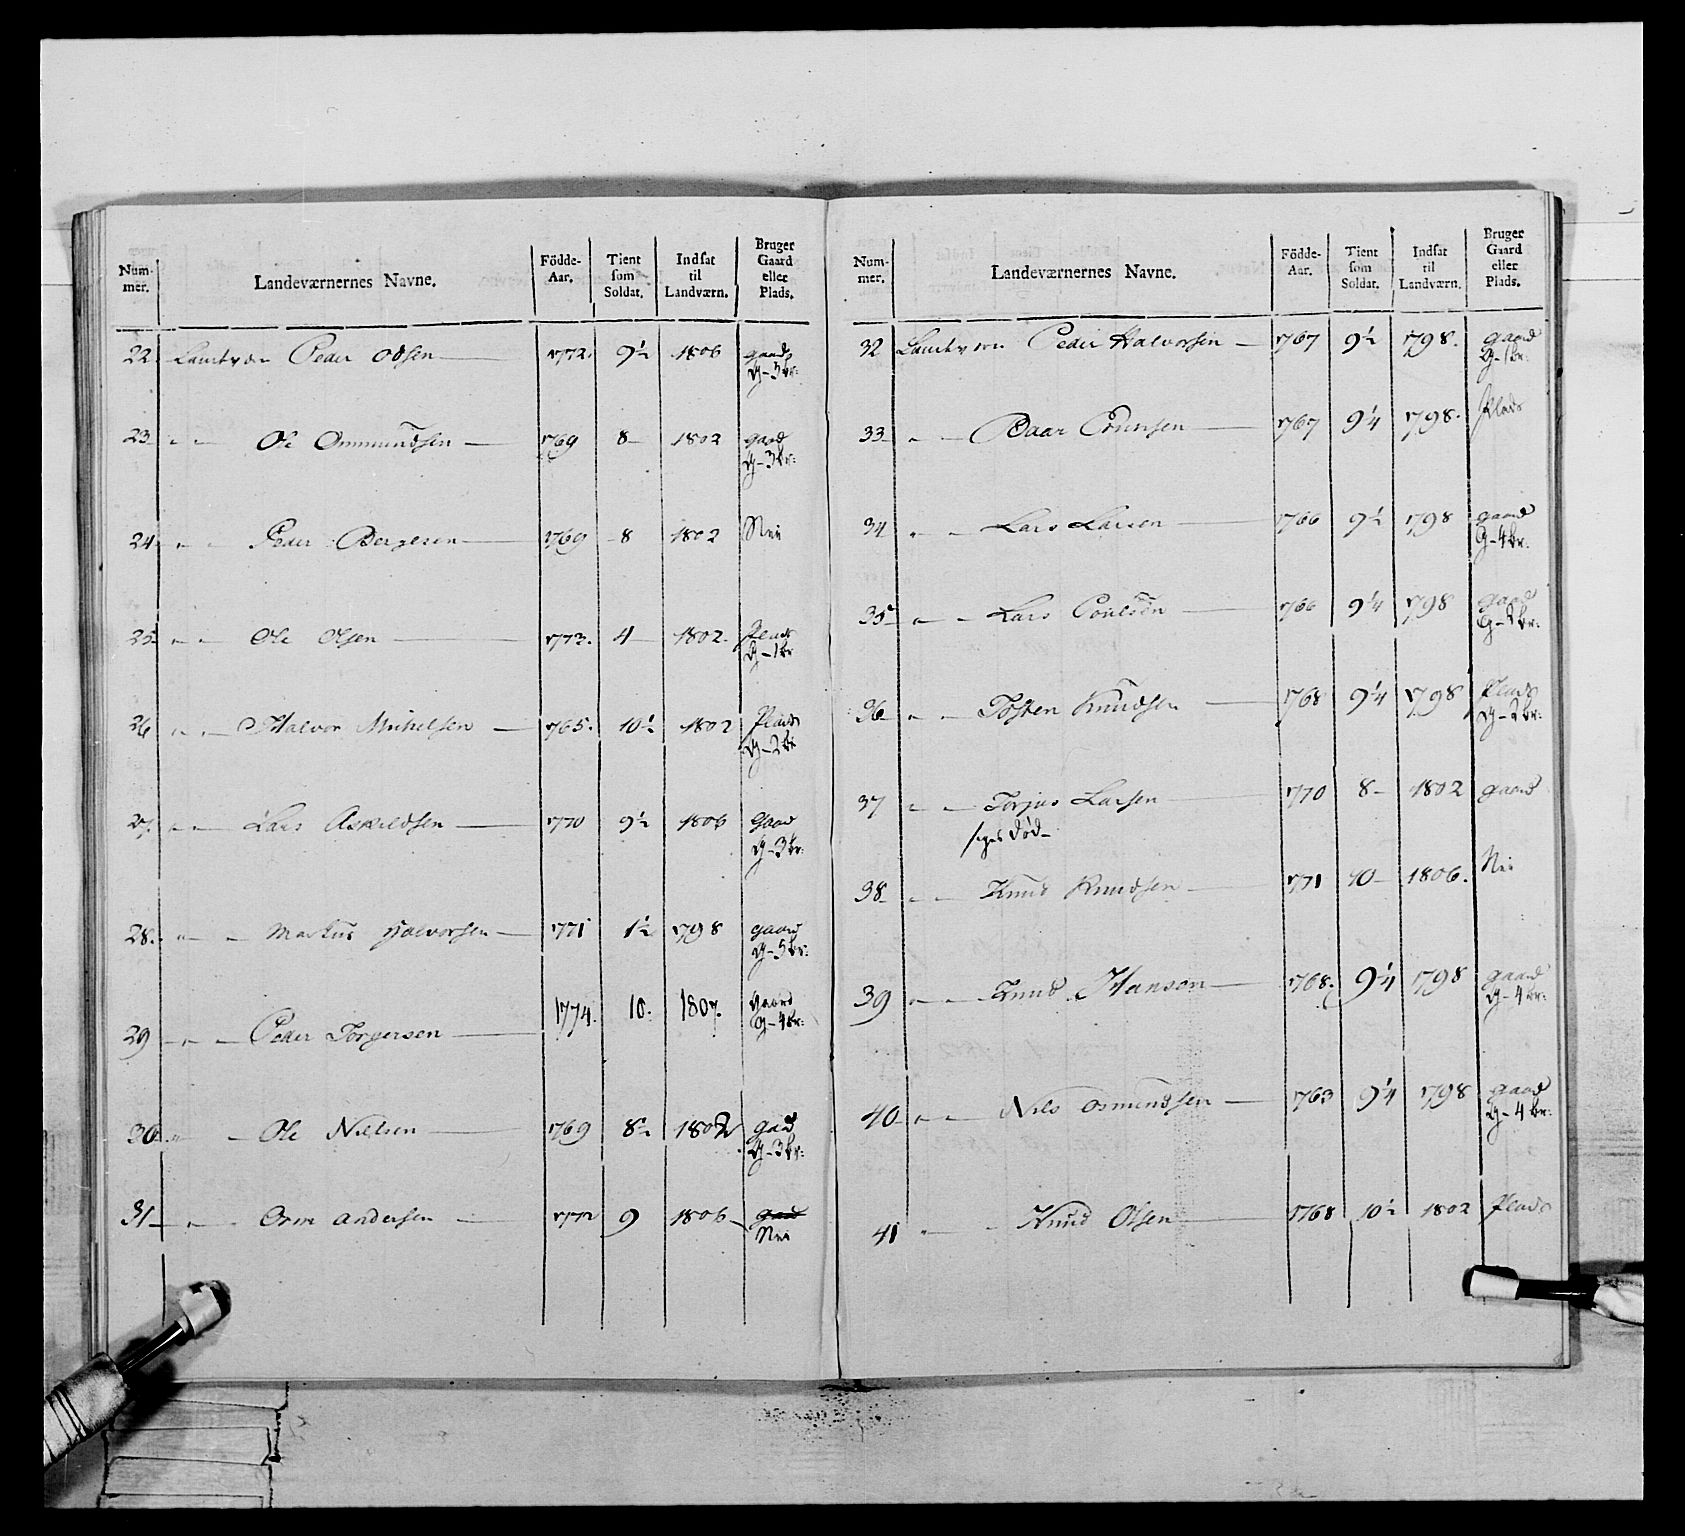 Num-mer. | Landeværnernes Navne. | Födde-Aar. | Tient som Soldat. | Indsat til Landværn. | Bruger Gaard eller Plads.
22. Landværn Peder Odsen 1772. 9½ 1806 gaard
G-3br:
23 " " Ole Ommundsen 1769 8 1802 gaard
G-3br:
24. " " Peder Bergesen 1769 8 1802 Nei
25. " " Ole Olsen 1773. 4 1802. Plads
G-1br
26 " " Halvor Michelsen 1765. 10½ 1802 Plads
G-2br
27. " " Lars Askildsen 1770 9½ 1806 Gaard
G-3br:
28. " " Markus Halvorsen 1771 1½ 1798 gaard
G-5br:
29 " " Peder Torgersen 1774. 10. 1807. Gaard
G-4br:
30. " " Ole Nielsen 1769 8½ 1802 gaard
G-3br:
31 " " Orm Andersen 1772 9 1806 gaard
Nei
Num-mer. | Landeværnernes Navne. | Födde-Aar. | Tient som Soldat. | Indsat til Landværn. | Bruger Gaard eller Plads.
32 Landværn Peder Halvorsen 1767 9½ 1798. gaard
G-1br:
33 " " Baar 1767 9¼ 1798. Plads
34 " " Lars Larsen 1766 9½ 1798 gaard
G-4br:
35 " " Lars Poulsen 1766 9¼ 1798 gaard
G-2br:
36 " " Tosten Knudsen 1768 9¼ 1798 Plads
G-2br:
37 " " Torjus Larsen 1770 8 1802 gaard
siges død
38 " " Knud Knudsen 1771 10 1806. Nei
39 " " Knud Hanson 1768. 9¼ 1798 gaard
G-4br:
40 " " Nils Osmundsen 1763 9¼ 1798 gaard
G-4br:
41 " " Knud Olsen 1768 10½ 1802 Plads